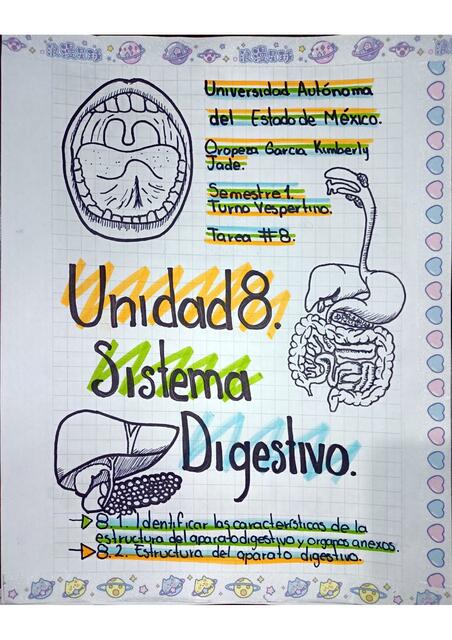 Universidad Autónoma
del Estado de México.
Oropeza García Kimberly
Jade.
Semestre 1.
Turno Vespertino.
Tarea #8.
Unidad 8.
Sistema
Digestivo.
8.1. Identificar las características de la
estructura del aparato digestivo y organos anexos.
8.2. Estructura del aparato digestivo.